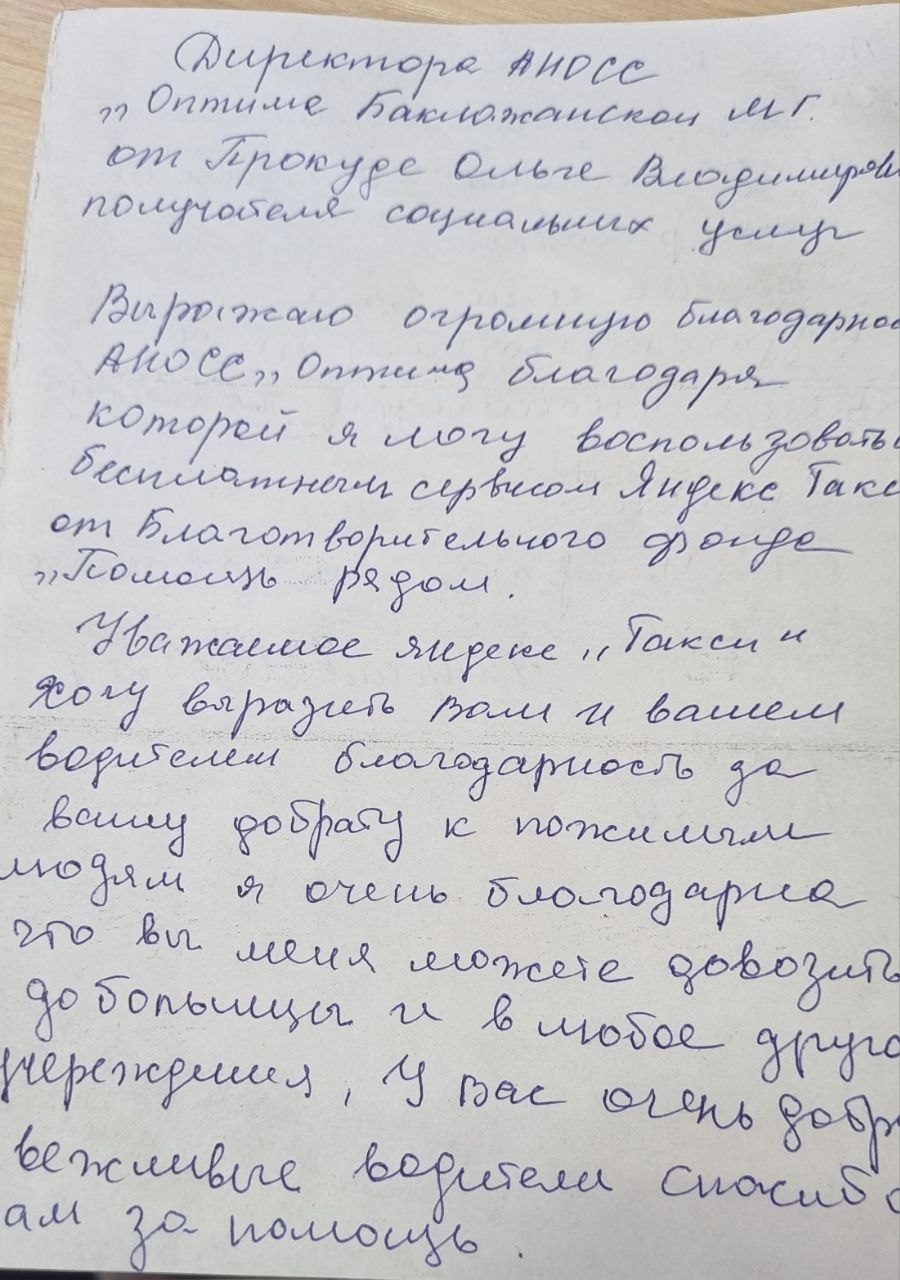 Директора АНОСС
„Оптима Баклажанской М Г.
от Прокуде Ольге Владимиров
получателя социальных услуг
Выражаю огромную благодарнос
АНОСС „Оптима благодаря
которой я могу воспользовать
бесплатным сервисом Яндекс Такс
от Благотворительного фонда
„Помощь рядом.
Уважаемое яндекс „Такси"
Хочу выразить Вам и вашем
водителем благодарность за
вашу добрату к пожилым
людям я очень благодарна
что вы меня можете довозить
до больницы и в любое друго
учереждения, У Вас очень добр
вежливые водители спасибо
ам за помощь.